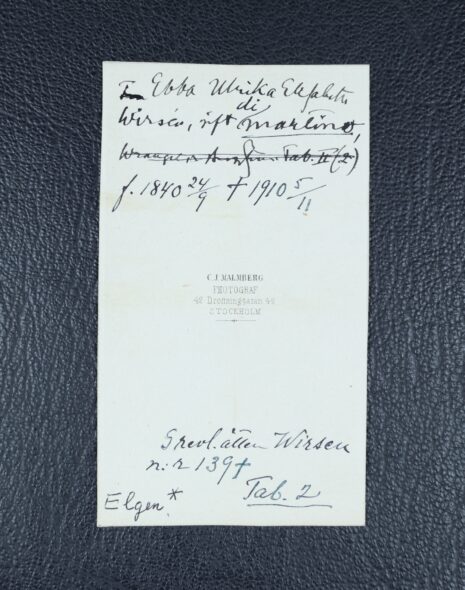 Ebba Ulrika Elisabeth
Wirsén, gift di Martino,
Tab. II (2)
f. 1840 24/9 † 1910 5/11
C. J. MALMBERG
PHOTOGRAF
42 Drottninggatan 42
STOCKHOLM
Grevl. ätten Wirsén
n:r 139†
Tab. 2
Elgen.*